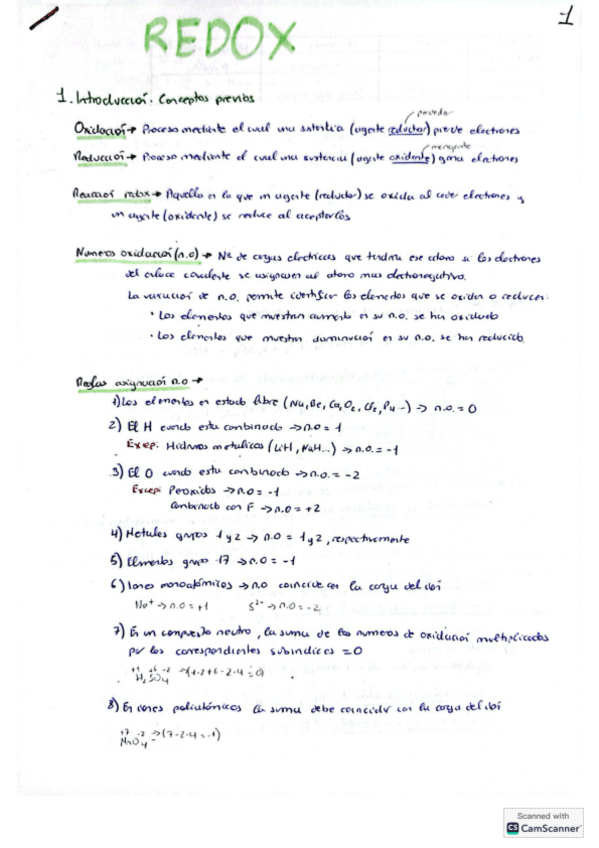 1
REDOX
1. Introducción. Conceptos previos
Oxidación → Proceso mediante el cual una sustancia (agente reductor) pierde electrones
Reducción → Proceso mediante el cual una sustancia (agente oxidante) gana electrones
Reacción redox → Aquella en la que un agente (reductor) se oxida al ceder electrones y
un agente (oxidante) se reduce al aceptarlos
Números oxidación (n.o) → Nº de cargas eléctricas que tendría ese átomo si los electrones
del enlace covalente se asignasen al átomo más electronegativo.
La variación de n.o. permite identificar los elementos que se oxidan o reducen:
• Los elementos que muestran aumento en su n.o. se han oxidado
• Los elementos que muestran disminución en su n.o. se han reducido
Reglas asignación n.o →
1) Los elementos en estado libre (Na, Be, Ca, O2, Cl2, Pu...) → n.o. = 0
2) El H cuando esta combinado → n.o = 1
Excep: Hidruros metálicos (LiH, NaH...) → n.o. = -1
3) El O cuando esta combinado → n.o. = -2
Excep: Peróxidos → n.o = -1
Combinado con F → n.o = +2
4) Metales grupos 1 y 2 → n.o = 1 y 2, respectivamente
5) Elementos grupo 17 → n.o = -1
6) Iones monoatómicos → n.o coincide con la carga del ión
Na+ → n.o = +1 S2- → n.o = -2
7) En un compuesto neutro, la suma de los números de oxidación multiplicados
por los correspondientes subíndices = 0
+1 +6 -2
H2SO4 → (1·2+6-2·4=0)
8) En iones poliatómicos la suma debe coincidir con la carga del ión
+7 -2
MnO4- → (7-2·4=-1)
Scanned with
CS CamScanner